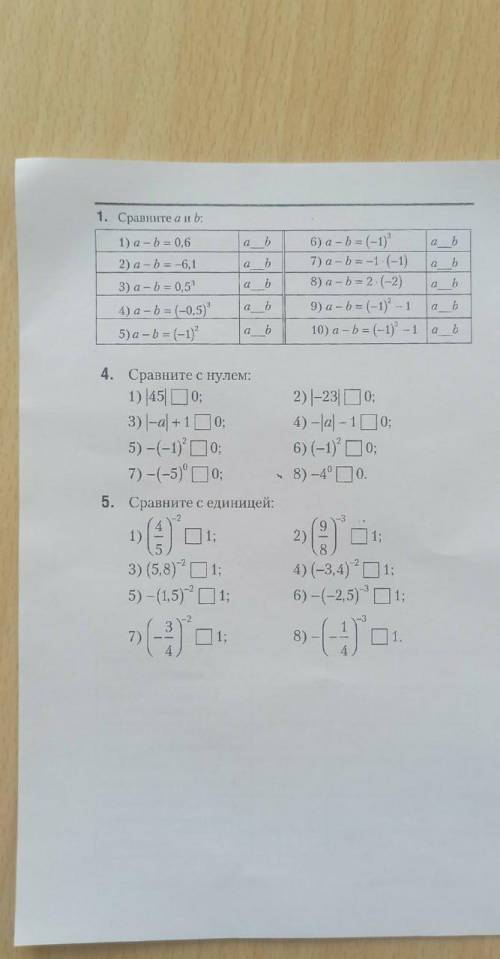 1. Сравните a и b:
1) a – b = 0,6 a__b 6) a – b = (–1)³ a__b
2) a – b = –6,1 a__b 7) a – b = –1·(–1) a__b
3) a – b = 0,5³ a__b 8) a – b = 2·(–2) a__b
4) a – b = (–0,5)³ a__b 9) a – b = (–1)² – 1 a__b
5) a – b = (–1)² a__b 10) a – b = (–1)³ – 1 a__b
4. Сравните с нулем:
1) |45| □ 0; 2) |–23| □ 0;
3) |–a| + 1 □ 0; 4) –|a| – 1 □ 0;
5) –(–1)² □ 0; 6) (–1)² □ 0;
7) –(–5)⁰ □ 0; 8) –4⁰ □ 0.
5. Сравните с единицей:
1) (4/5)⁻² □ 1; 2) (9/8)⁻³ □ 1;
3) (5,8)⁻² □ 1; 4) (–3,4)⁻² □ 1;
5) –(1,5)⁻² □ 1; 6) –(–2,5)⁻³ □ 1;
7) (–3/4)⁻² □ 1; 8) –(–1/4)⁻³ □ 1.